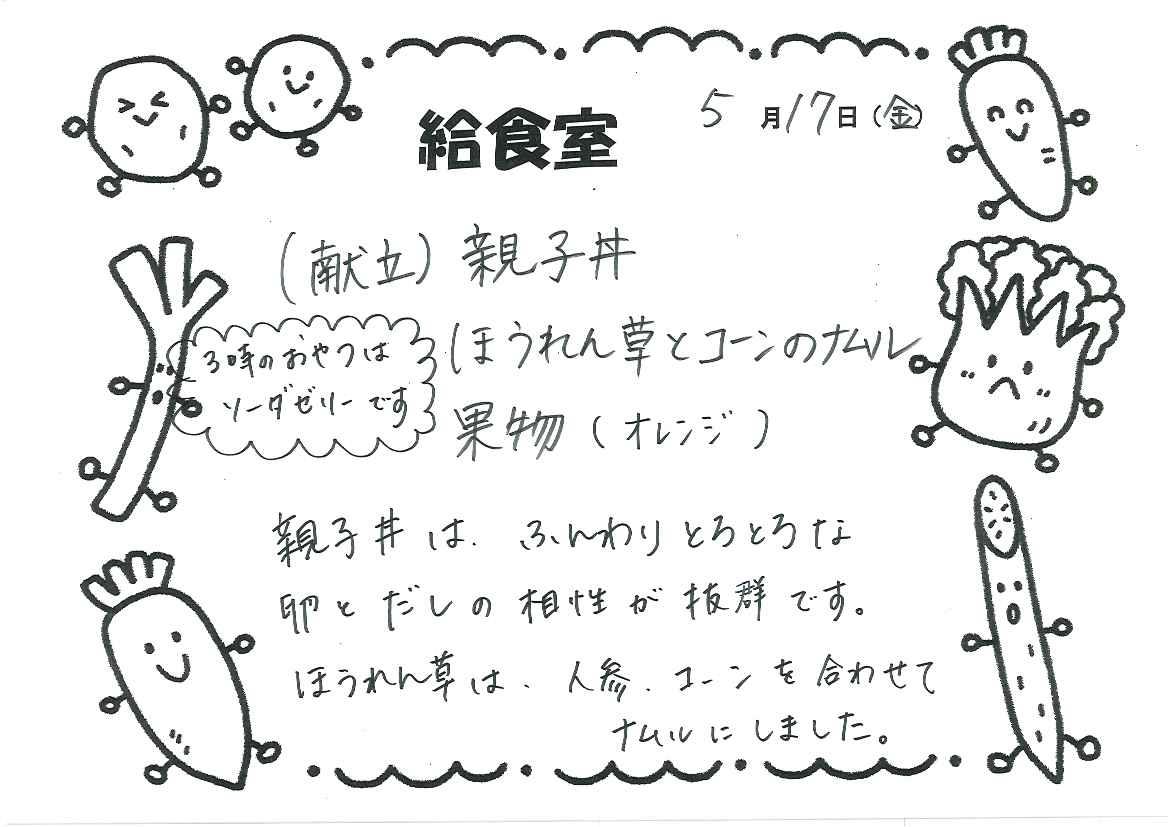 給食室
5月17日(金)
(献立)親子丼
ほうれん草とコーンのナムル
果物(オレンジ)
3時のおやつは
ソーダゼリーです
親子丼は、ふんわりとろとろな
卵とだしの相性が抜群です。
ほうれん草は、人参、コーンを合わせて
ナムルにしました。